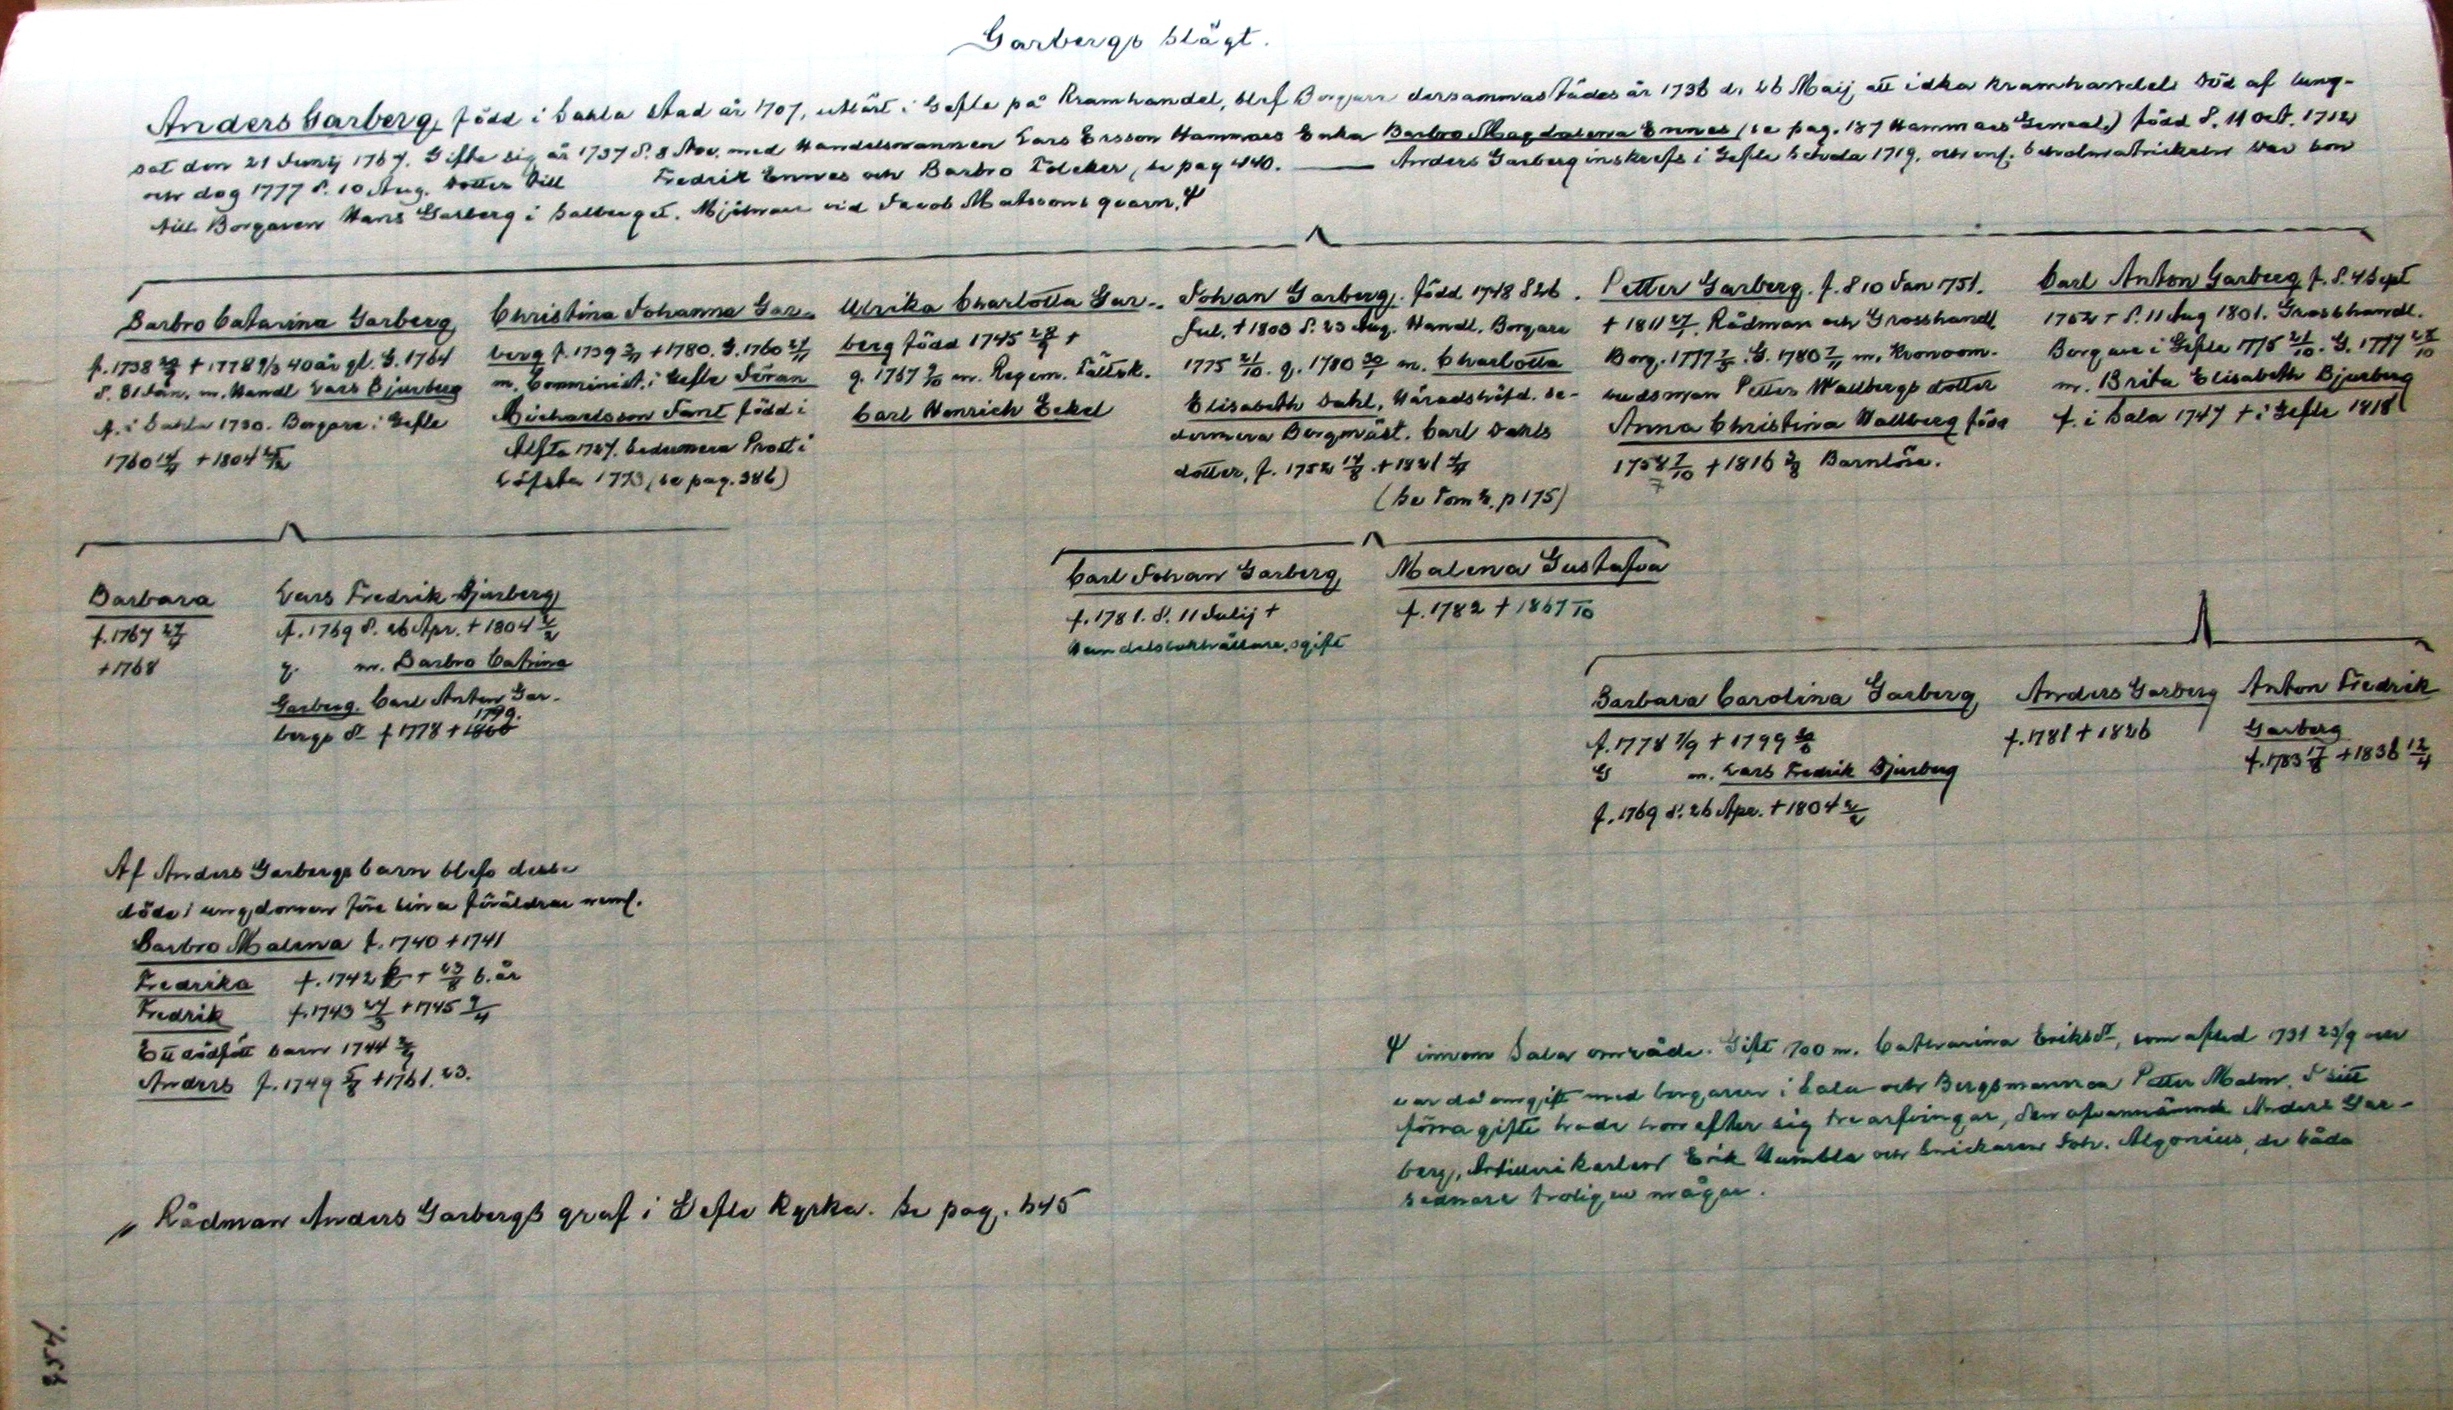 Garbergs Slägt.
Anders Garberg, född i Sahla Stad år 1707, utlärt i Gefle på Kramhandel, blef Borgare dersammastädes år 1736 d. 26 Maij att idka Kramhandel. Död af lung-
sot den 21 Junij 1767. Gifte sig år 1737 d. 8 Nov. med Handelsmannen Lars Ersson Hammars Enka Barbro Magdalena Ennes (se pag. 187 Hammars Geneal.) född d. 11 Oct. 1712
och dog 1777 d. 10 Aug. Dotter till Fredrik Ennes och Barbro Fölcker, se pag 440. — Anders Garberg inskrefs i Gefle Schola 1719, och enl. Scholmatrickeln var son
till Borgaren Hans Garberg i Salberget. Mjölnare vid Jacob Matssons qvarn. Ψ
Barbro Catarina Garberg
f. 1738 + 1778 9/3 40 år gl. G. 1764
d. 31 Jan. m. Handl Lars Bjurberg
f. i Sahla 1730. Borgare i Gefle
1760 + 1804
Christina Johanna Gar-
berg f. 1739 + 1780. G. 1760
m. Comminist. i Gefle Jöran
Michaelsson Fant född i
Alfta 1727. Sedermera Prost i
Löfsta 1773 (se pag. 386)
Ulrika Charlotta Gar-
berg född 1745 +
g. 1767 m. Regem. Fältsk.
Carl Henrich Eckel
Johan Garberg. född 1748 d 26
Jul. + 1803 d. 23 Aug. Handl. Borgare
1775 21/10. g. 1780 30/1 m. Charlotta
Elisabeth Dahl, Häradshöfd. se-
dermera Borgmäst. Carl Dahls
dotter, f. 1752 + 1821
(Se Tom 2. p 175)
Petter Garberg. f. d 10 Jan 1751.
+ 1811. Rådman och Grosshandl
Borg. 1777. G. 1780 7/11 m. Kronoom-
budsman Petter Wallbergs dotter
Anna Christina Wallberg född
1758 7/10 + 1816 Barnlöse.
Carl Anton Garberg f. d. 4 Sept
1752 + d. 11 Aug 1801. Grosshandl.
Borgare i Gefle 1775 21/10. G. 1777 28/10
m. Brita Elisabeth Bjurberg
f. i Sala 1747 + i Gefle 1818
Barbara
f. 1767
+ 1768
Lars Fredrik Bjurberg
f. 1769 d. 26 Apr. + 1804 2/2
g. m. Barbro Catrina
Garberg. Carl Anton Gar-
1799.
bergs dr f 1778 + 1800
Carl Johan Garberg
f. 1781. d. 11 Julij +
Handelsbokhållare, ogift
Malena Gustafva
f. 1782 + 1867
Barbara Carolina Garberg
f. 1778 7/9 + 1799
G m. Lars Fredrik Bjurberg
f. 1769 d. 26 Apr. + 1804 2/2
Anders Garberg
f. 1781 + 1826
Anton Fredrik
Garberg
f. 1783 17/8 + 1836 12/4
Af Anders Garbergs barn blefvo desse
döde i ungdomen före sina föräldrar neml.
Barbro Malena f. 1740 + 1741
Fredrika f. 1742 + 23/8 s. år
Fredrik f. 1743 24/3 + 1745 9/4
Ett dödfött barn 1744
Anders f. 1749 + 1761. 23.
Rådman Anders Garbergs graf i Gefle Kyrka. Se pag. 545
Ψ innom Sala område. Gift 700 m. Catharina Eriksdr, som afled 1731 23/9 och
var då omgift med borgaren i Sala och Bergsmannen Petter Malm. I sitt
förra gifte hade hon efter sig tre arfvingar, den ofvannämnde Anders Gar-
berg, Artillerikarlen Erik Humbla och Snickaren Joh. Algonius, de båda
sednare troligen mågar.